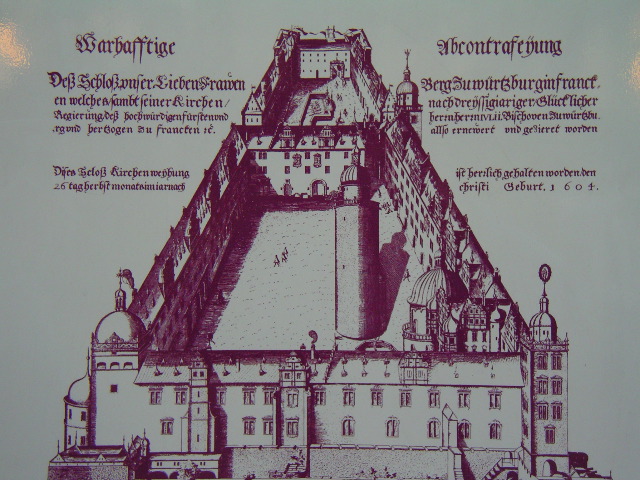 Warhafftige Abcontrafeÿung
Deß Schloß vnser Lieben Frawen Berg Zu würtzburg in franck.
en welches sambt seiner Kirchen / nach dreyssigiariger Glücklicher
Regierung deß hochwürdigen fürsten vnd herrn herrn IVLII. Bischoven Zu würtzbu.
.rg vnd hertzogen zu francken ec. allso ernewert vnd gezieret worden
Dises Schloß Kirchenweyhung ist herrlich gehalten worden den
26 tag herbstmonats im iar nach christi Geburt. 1604.